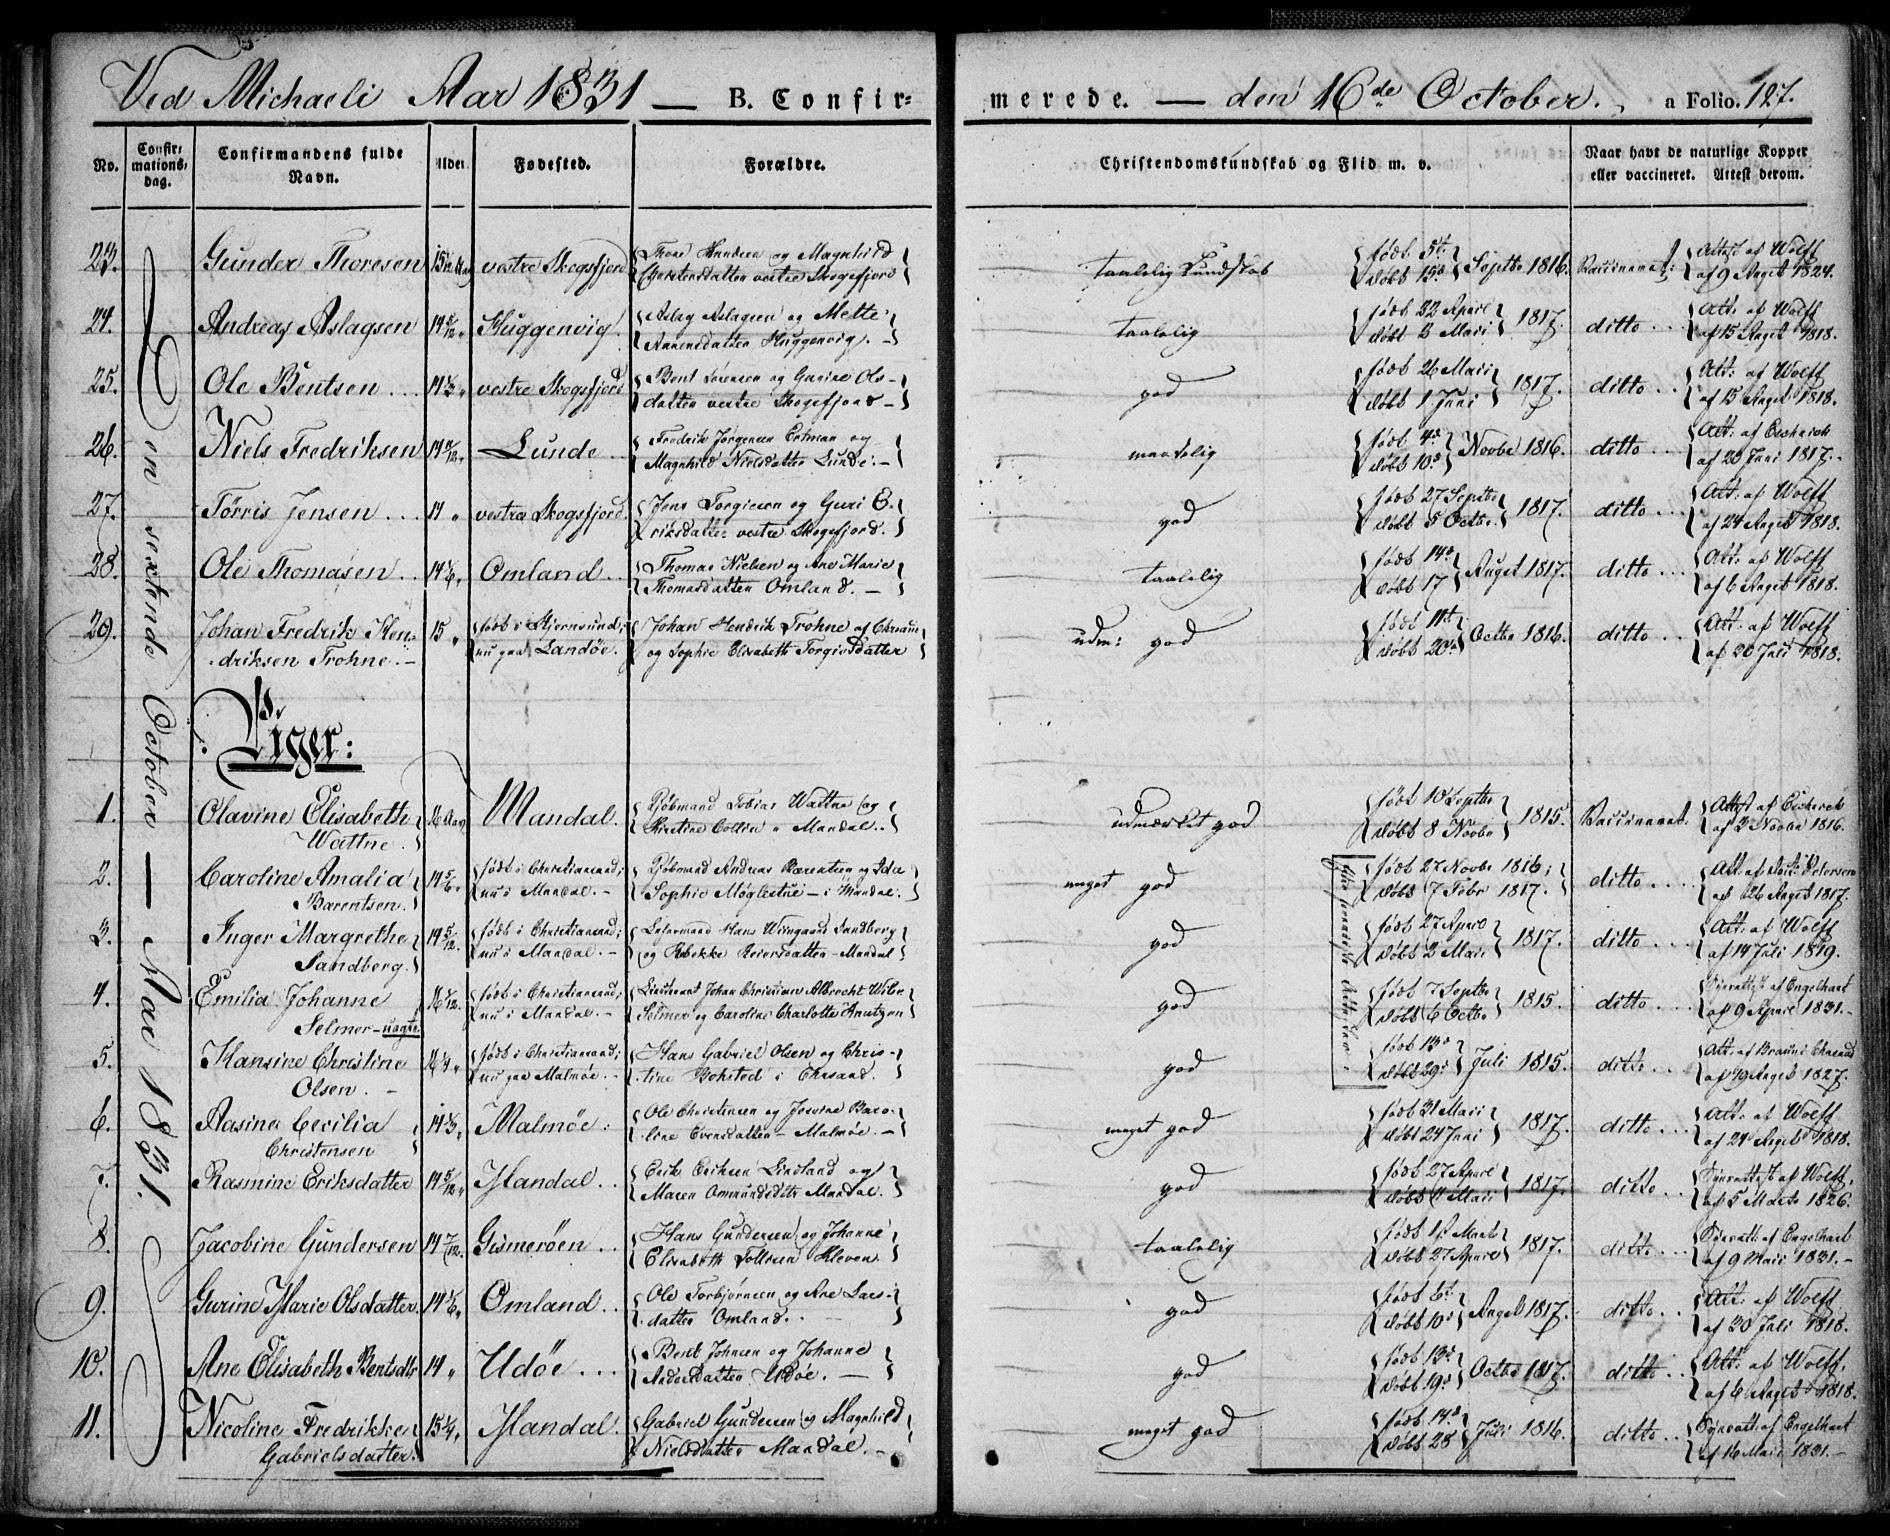 Ved Michaeli Aar 1831 — B. Confirmerede. — den 16de October. a Folio. 127.
No. Confirmationsdag. Confirmandens fulde Navn. Alder. Fødested. Forældre. Christendomskundskab og Flid m. v. Naar havt de naturlige Kopper eller vaccineret. Attest derom.
Den sextende October — Aar 1831.
23. Gunder Thoresen vestre Skogsfjord Thore Gundersen og Magnhild Christensdatter vestre Skogsfjord taalelig Kundskab født 5t døbt 15d Septbr 1816. Vaccineret Attest af Wolff af 9 Augst 1824.
24. Andreas Aslagsen 14 5/12 " Huggenvig Aslag Aslagsen og Mette Huggenvig. — taalelig født 22 April døbt 2 Maii 1817. ditto Att: af Wolff af 15 Augst 1818.
25. Ole Bentsen 14 1/3 " vestre Skogsfjord Bent Sørensen og Gurine Olsdatter vestre Skogsfjord — god født 26 Maii døbt 1 Juni 1817. ditto Att: af Wolff af 15 Augst 1818.
26. Niels Fredriksen Lunde Fredrik Jørgensen og Magnhild Nielsdatter Lunde. — maadelig født 4d døbt 10d Novbr 1816. ditto Att: af Eschrich af 20 Juni 1817. —
27. Tørris Jensen 14 " vestre Skogsfjord. Jens Torgiersen og Guri Eriksdatter vestre Skogsfjord. god født 27 Septbr døbt 5 Octbr. 1817. ditto Att: af Wolff af 24 Augst 1818.
28. Ole Thomasen 14 1/6 " Omland Thomas Nielsen og Ane Marie Thomasdatter Omland. — taalelig født 14d døbt 17 August 1817. ditto Att: af Wolff af 6 Augst 1818.
29. Johan Fredrik Hendriksen Trohne. — 15 " født i Stjernsund; nu paa Landøe. Johan Hendrik Trohne af Chrsand og Sophie Elisabeth Torgiesdatter udm: god født 11t døbt 20d Octbr 1816. ditto Att: af Wolff af 20 Juli 1818.
Piger:
1. Olavine Elisabeth Wattne. 16 Aar Mandal. Kjøbmand Tobias Wattne og Kirstine Collin i Mandal. udmærket god født 10 Septbr døbt 8 Novbr 1815. Vaccineret. Attest af Eschrich af 2 Novbr 1816.
2. Caroline Amalia Barentsen. 14 5/6 " født i Christiansand; nu i Mandal. — Kjøbmand Andreas Barentsen og Ida Sophie — i Mandal. meget god født 27 Novbr 1816; døbt 7 Febr 1817. ditto af Petersen af 26 Augst 1817.
3. Inger Margrethe Sandberg. 14 5/12. født i Christiansand; nu i Mandal. — Hans Wingaard Sandberg og Rebekke Reiersdatter — Mandal god født 27 April døbt 2 Maii 1817. ditto Att: af af 14 Juli 1819.
4. Emilia Johanne Selmer — uægte. 16 1/12. født i Christiansand; nu i Mandal. — Lieutenant Johan Christian Albrecht Selmer og Caroline Charlotte Knutzen god født 7 Septbr døbt 6 Octbr 1815. ditto Synsattest af Engelhart af 9 April 1831. —
5. Hansine Christine Olsen. — 16 1/4 " født i Christiansand; nu paa Malmøe. — Hans Gabriel Olsen og Christine Bohsted i Chrsand. god født 13d døbt 29d Juli 1815. ditto Att: af Brauni Chrsand af 19 Augst 1827.
6. Aasine Cecilia Christensen 14 1/3 " Malmøe: Ole Christensen og Evensdatter — Malmøe. — meget god født 31 Maii døbt 24 Juni 1817. ditto Att: af Wolff af 24 Augst 1818.
7. Rasmine Eriksdatter 14 5/12 " Mandal. Erik Eriksen Lindland og Maren Omundsdatter Mandal. god født 27 April døbt 11 Maii 1817. ditto Synsattest af Wolff, af 5 Marts 1826.
8. Jacobine Gundersen 14 7/12. Gismerøen Hans Gundersen og Johanne Elisabeth Tollesen Kleven. taalelig født 1st Marts døbt 27 April 1817. ditto Synsatt: af Engelhart af 9 Maii 1831. —
9. Gurine Marie Olsdatter. 14 1/6 " Omland. Ole Torbjørnsen og Ane Larsdatter Omland. god født 6t døbt 10d August 1817. ditto Att: af Wolff af 20 Juli 1818.
10. Ane Elisabeth Bentsdtr 14 " Udøe Bent Johnsen og Johanne Andersdatter Udøe. — god født 13d døbt 19d Octbr 1817. ditto Att: af Wolff, af 6 Augst 1818.
11. Nicoline Fredrikke Gabrielsdatter. 15 1/4 " Mandal. Gabriel Gundersen og Magnhild Nielsdatter Mandal. — meget god født 14d døbt 28 Juli 1816. ditto Synsatt: af Engelhart af 16 Maii 1831. —